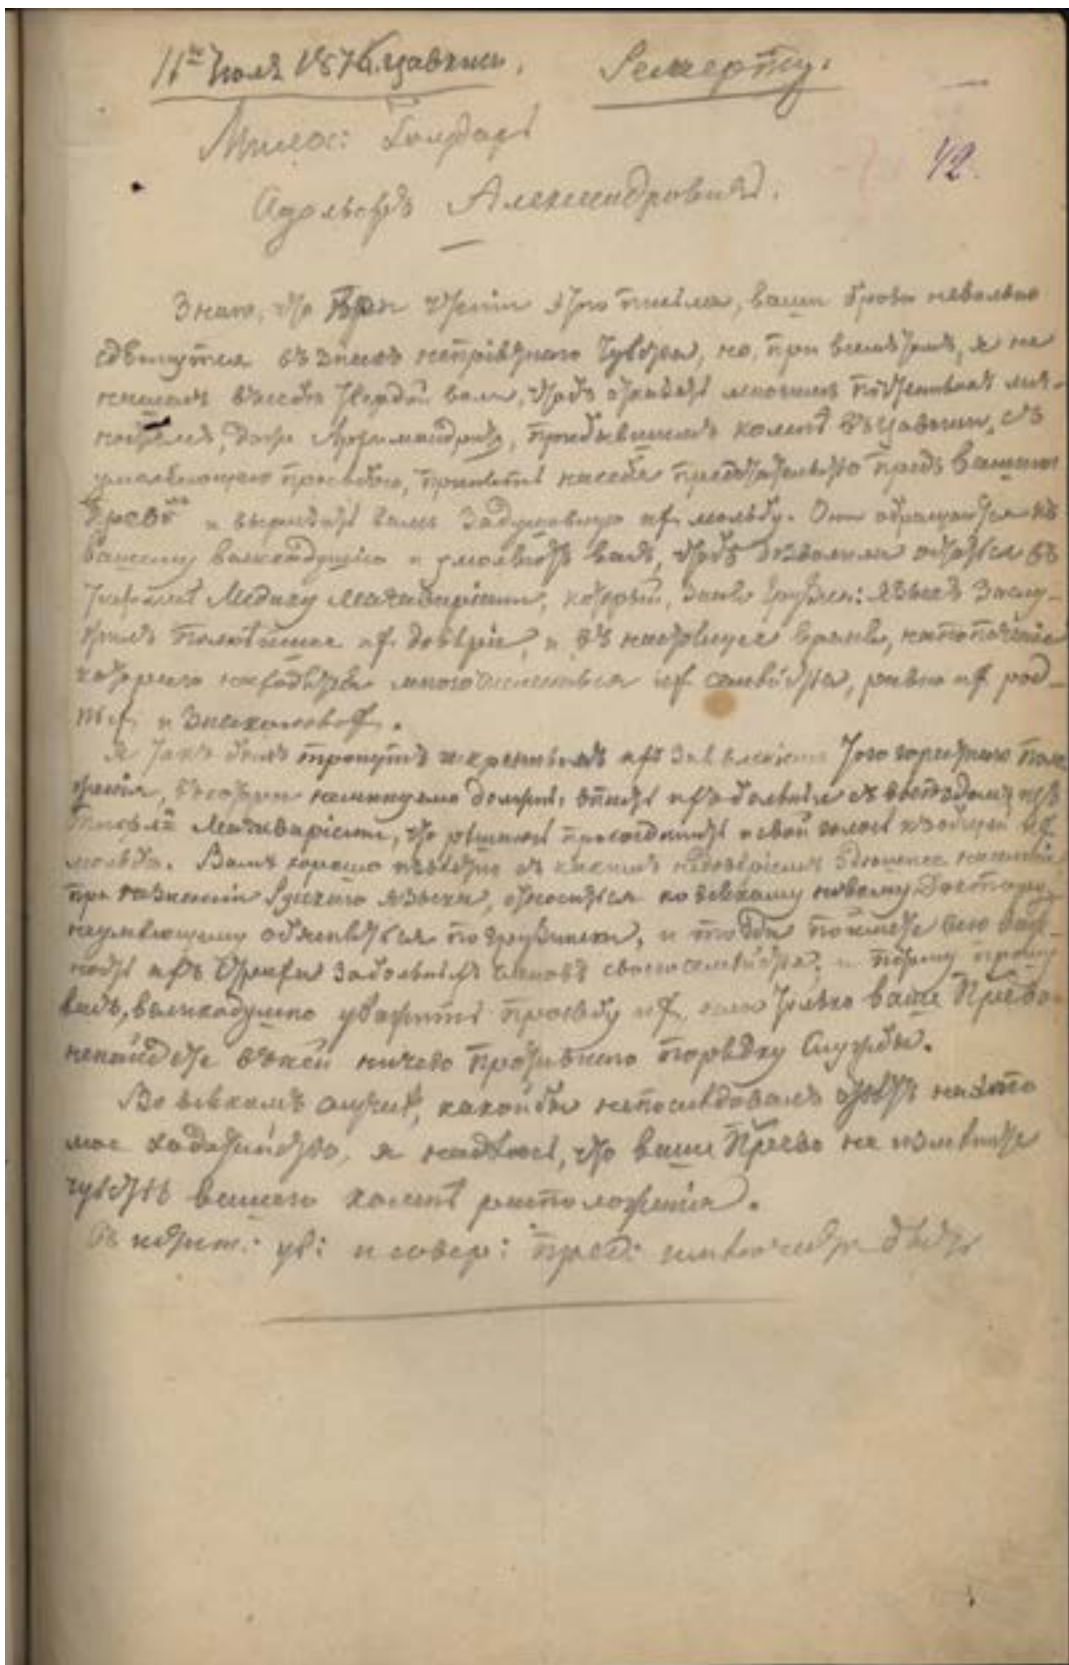 11го Июля 1876. Цавкиси. Ремерту.
Милос: Государь
42.
Адольфъ Александровичъ.
Знаю, что при чтеніи этого письма, ваши брови невольно
сдвинутся въ знакъ непріятнаго чувства, но, при всемъ томъ, я не
въ себѣ твердой воли, чтобъ отказать многимъ почтеннымъ
даже Архимандриту, прибывшимъ ко мнѣ въ Цавкиси, съ
умоляющею просьбою, принять на себя предстательство предъ вашимъ
Превомъ и выразить вамъ задушевную их мольбу. Они обращаются къ
вашему великодушію и умоляютъ васъ, чтобъ дозволили остаться въ
Медику Мачаваріани, который, зная грузин: языкъ заслу-
жилъ полнѣйшее их довѣріе, и въ настоящее время, на попеченіи
котораго находятся многочисленныя их семейства, равно их род-
ных и знакомовъ.
Я такъ былъ тронутъ искреннимъ ихъ того горестнаго поло-
женія, въ которое неминуемо должны впасть ихъ больные съ изъ
Мачаваріани, что рѣшаюсь присоединить и свой голосъ къ общей их
мольбѣ. Вамъ хорошо извѣстно съ какимъ недовѣріемъ здѣшнее населеніе
при незнаніи Русскаго языка, относится ко всякому новому Доктору,
неумѣющему объясняться по грузински, и тогда поймете всю
ихъ заболѣвшихъ членовъ своего семейства; и потому прошу
васъ, великодушно уважить просьбу их, если только ваше Прево
ненайдете въ ней ничего противнаго порядку службы.
Во всякомъ случаѣ, какой бы непослѣдовалъ отвѣтъ на это
мое ходатайство, я надѣюсь, что ваше Прево не измѣните
чувствъ вашего ко мнѣ расположенія.
Съ истин: ув: и совер: пред: имѣю честь быть